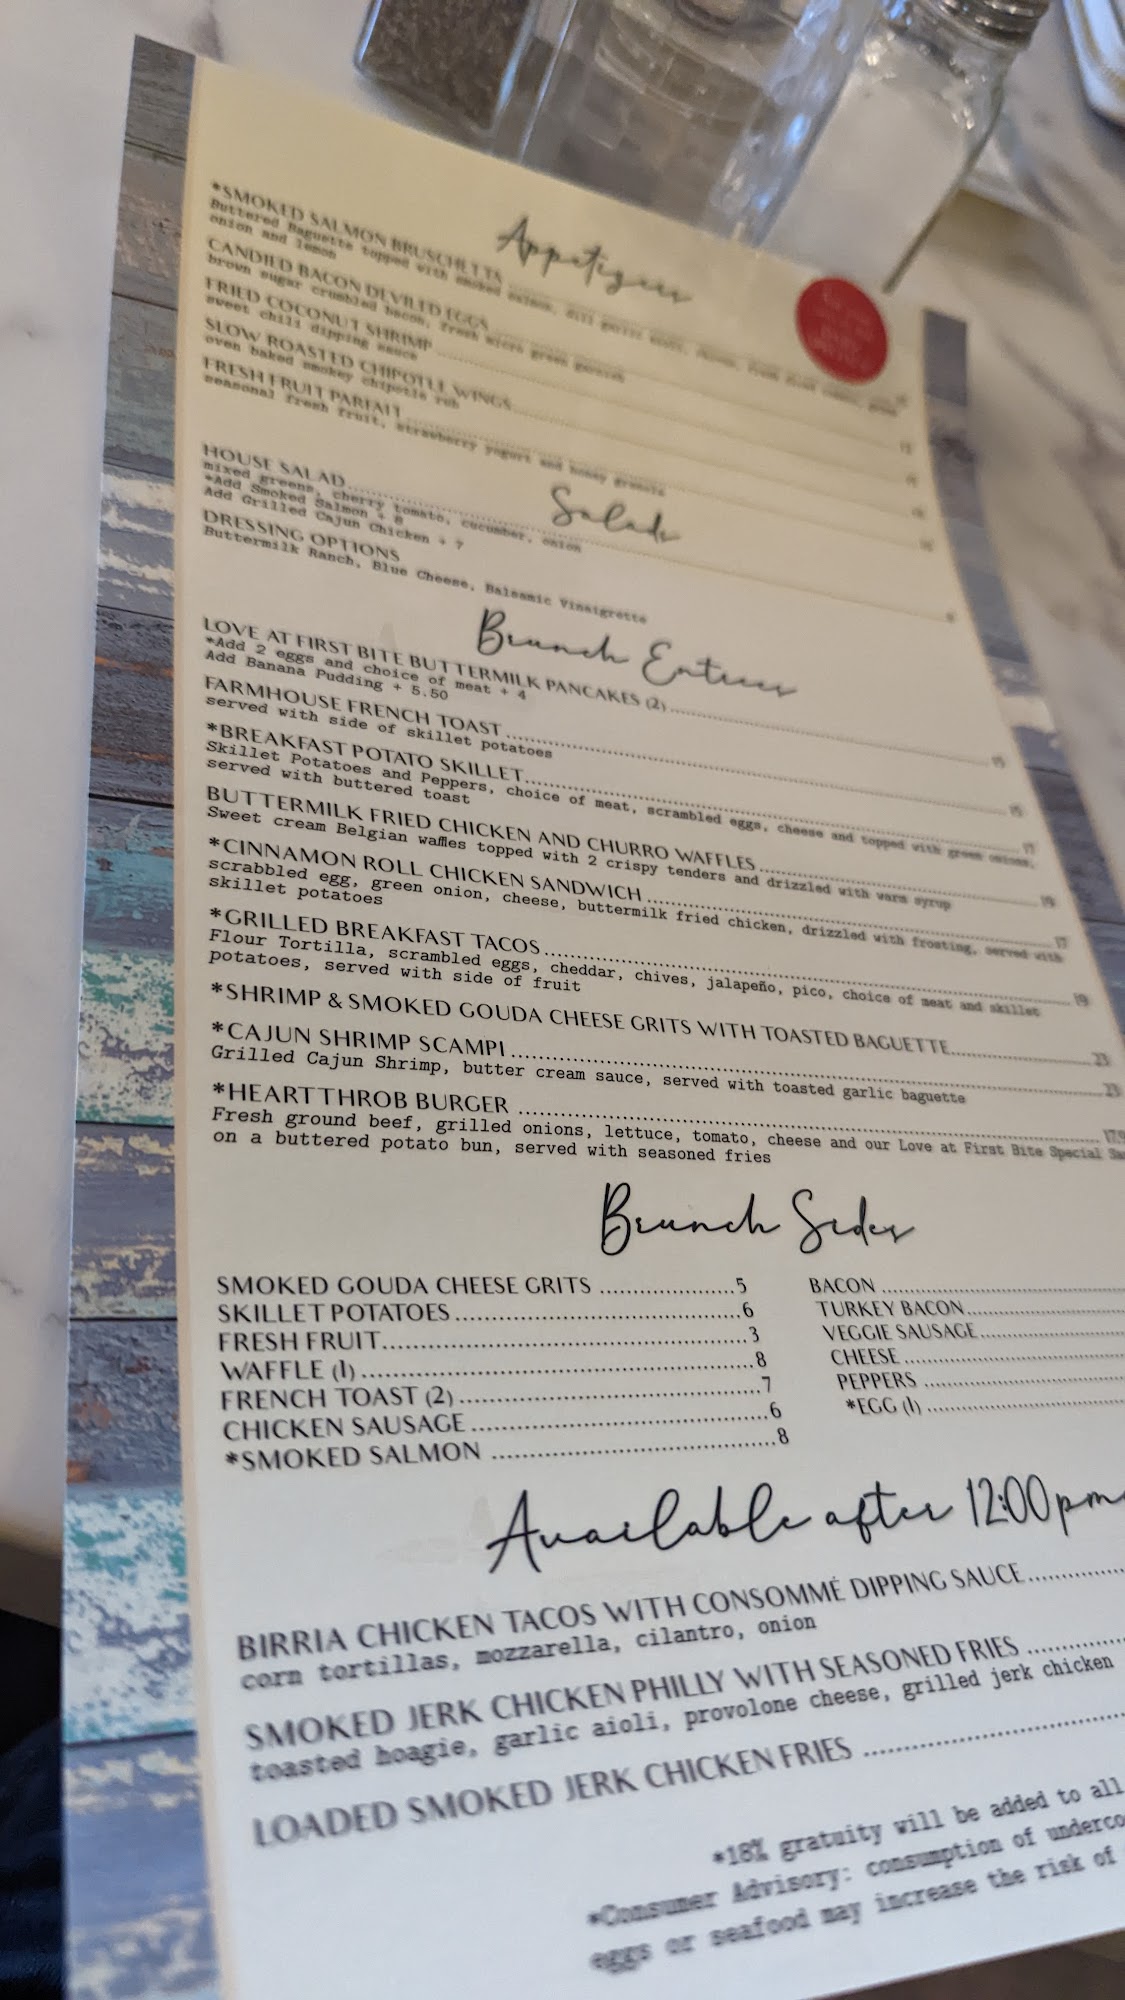 Appetizers
*SMOKED SALMON BRUSCHETTS
Buttered Baguette topped with smoked salmon, dill
onion and lemon
CANDIED BACON DEVILED EGGS
brown sugar crumbled bacon, fresh micro green garnish
FRIED COCONUT SHRIMP
sweet chili dipping sauce
SLOW ROASTED CHIPOTLE WINGS
oven baked smokey chipotle rub
FRESH FRUIT PARFAIT
seasonal fresh fruit, strawberry yogurt and honey granola
Salads
HOUSE SALAD
mixed greens, cherry tomato, cucumber, onion
*Add Smoked Salmon + 8
Add Grilled Cajun Chicken + 7
DRESSING OPTIONS
Buttermilk Ranch, Blue Cheese, Balsamic Vinaigrette
Brunch Entrees
LOVE AT FIRST BITE BUTTERMILK PANCAKES (2) 15
*Add 2 eggs and choice of meat + 4
Add Banana Pudding + 5.50
FARMHOUSE FRENCH TOAST 15
served with side of skillet potatoes
*BREAKFAST POTATO SKILLET 17
Skillet Potatoes and Peppers, choice of meat, scrambled eggs, cheese and topped with green onions,
served with buttered toast
BUTTERMILK FRIED CHICKEN AND CHURRO WAFFLES 19
Sweet cream Belgian waffles topped with 2 crispy tenders and drizzled with warm syrup
*CINNAMON ROLL CHICKEN SANDWICH 17
scrabbled egg, green onion, cheese, buttermilk fried chicken, drizzled with frosting, served with
skillet potatoes
*GRILLED BREAKFAST TACOS 19
Flour Tortilla, scrambled eggs, cheddar, chives, jalapeño, pico, choice of meat and skillet
potatoes, served with side of fruit
*SHRIMP & SMOKED GOUDA CHEESE GRITS WITH TOASTED BAGUETTE 23
*CAJUN SHRIMP SCAMPI 23
Grilled Cajun Shrimp, butter cream sauce, served with toasted garlic baguette
*HEARTTHROB BURGER
Fresh ground beef, grilled onions, lettuce, tomato, cheese and our Love at First Bite Special
on a buttered potato bun, served with seasoned fries
Brunch Sides
SMOKED GOUDA CHEESE GRITS 5
SKILLET POTATOES 6
FRESH FRUIT 3
WAFFLE (1) 8
FRENCH TOAST (2) 7
CHICKEN SAUSAGE 6
*SMOKED SALMON 8
BACON
TURKEY BACON
VEGGIE SAUSAGE
CHEESE
PEPPERS
*EGG (1)
Available after 12:00pm
BIRRIA CHICKEN TACOS WITH CONSOMMÉ DIPPING SAUCE
corn tortillas, mozzarella, cilantro, onion
SMOKED JERK CHICKEN PHILLY WITH SEASONED FRIES
toasted hoagie, garlic aioli, provolone cheese, grilled jerk chicken
LOADED SMOKED JERK CHICKEN FRIES
*18% gratuity will be added to all
*Consumer Advisory: consumption of underco
eggs or seafood may increase the risk of